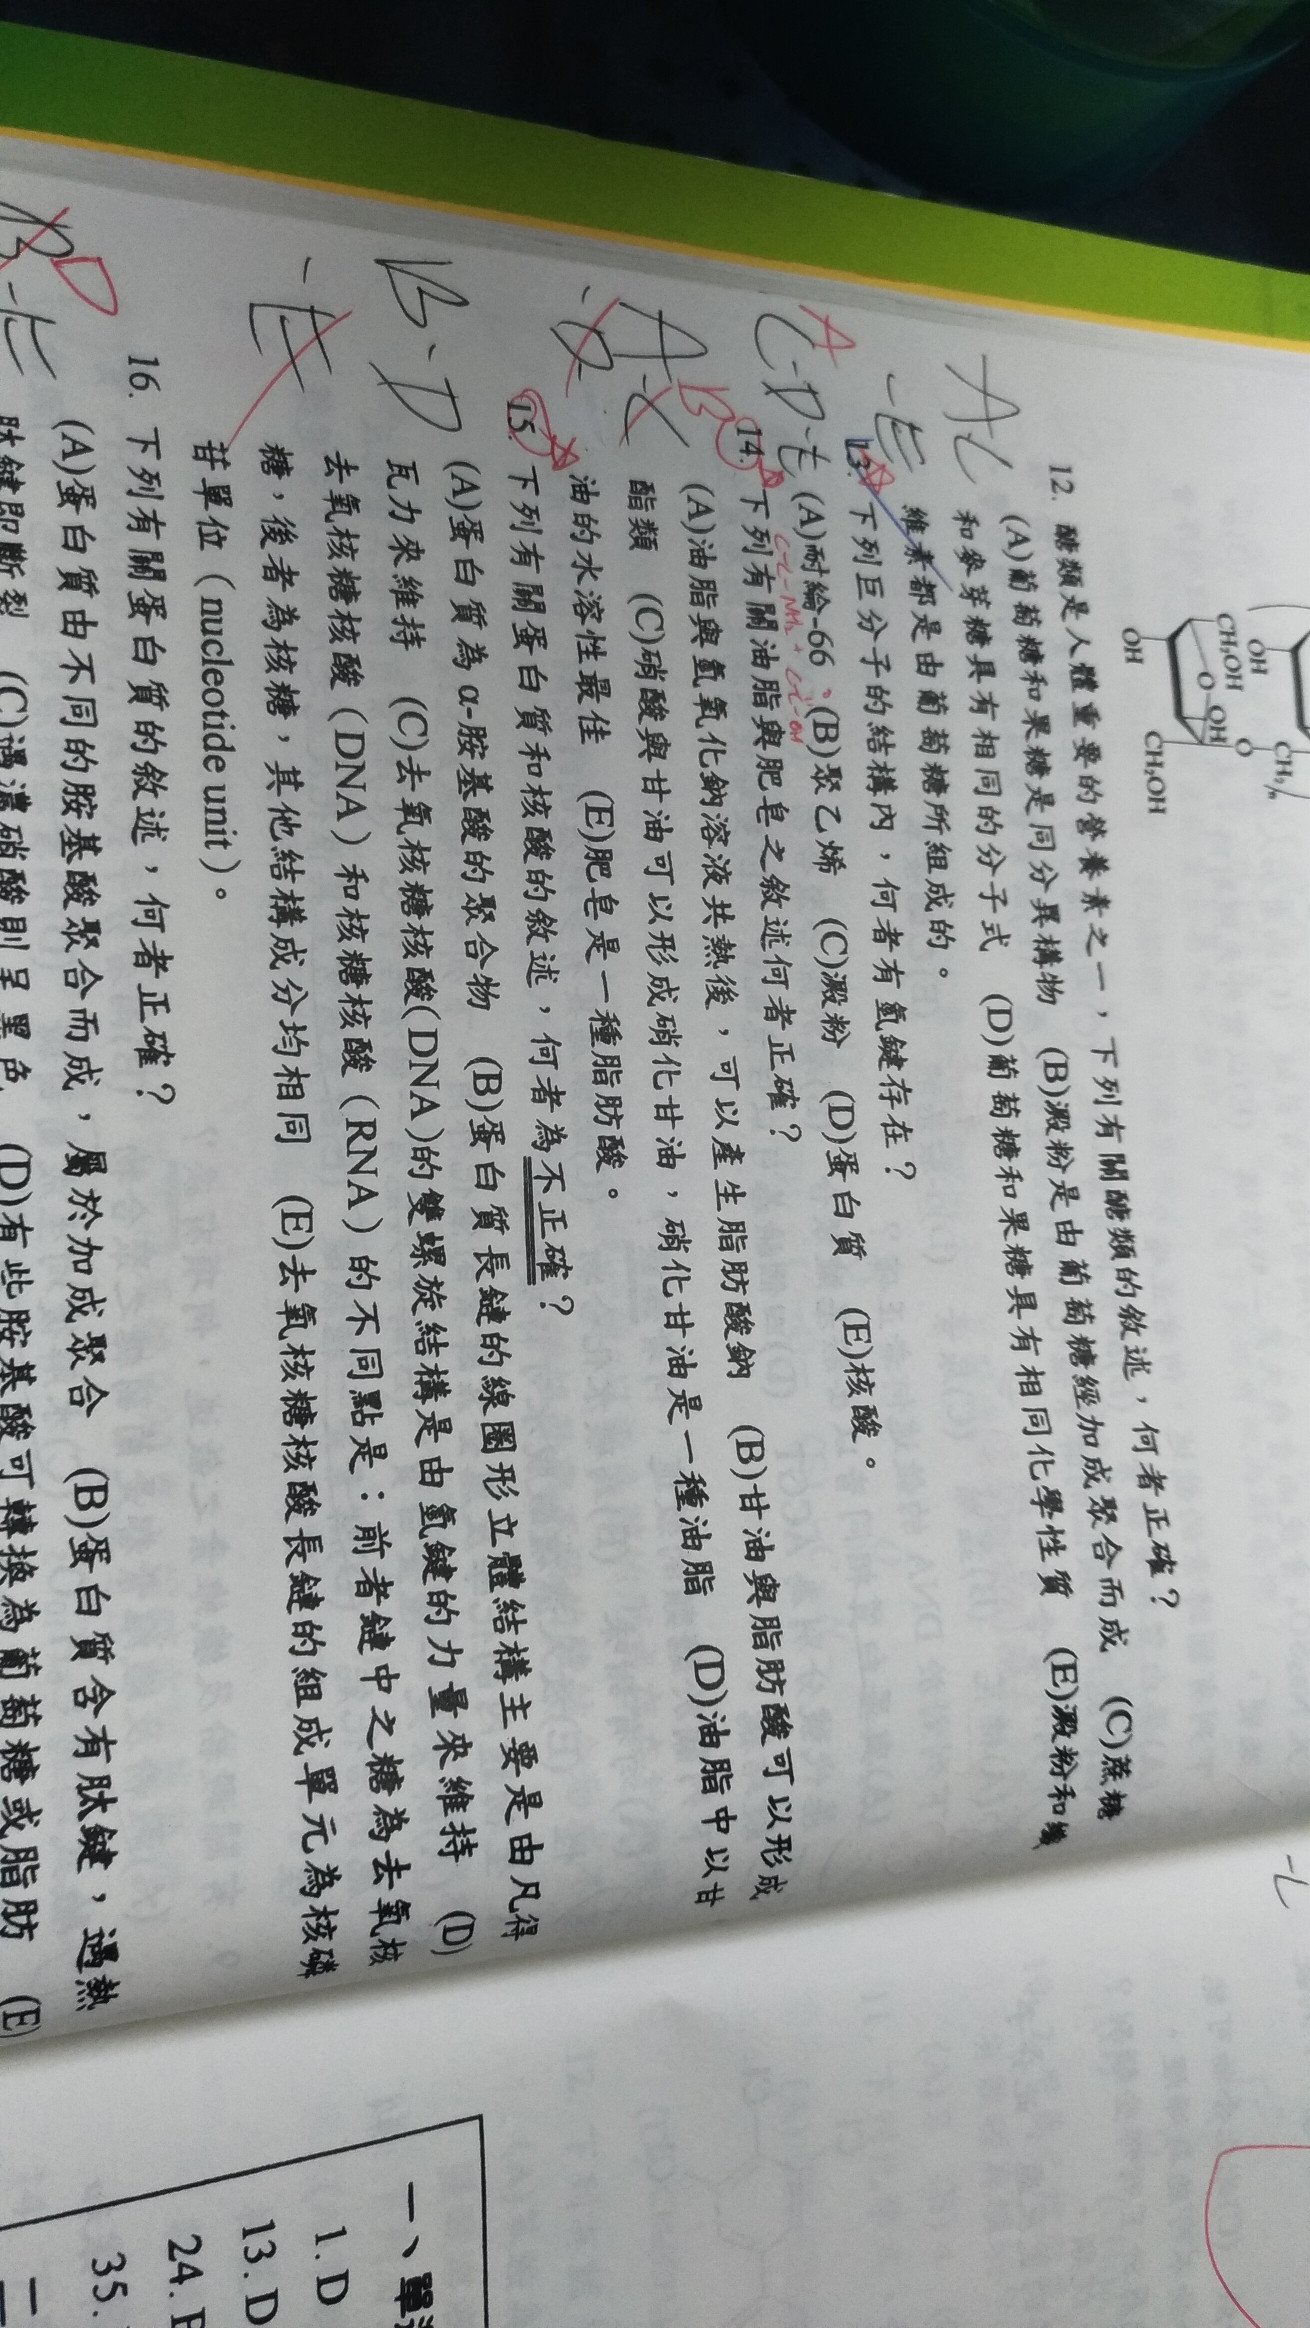 OH
CH₂OH
O
OH
OH
O
CH₂OH
ACE
12. 醣類是人體重要的營養素之一，下列有關醣類的敘述，何者正確？
(A)葡萄糖和果糖是同分異構物 (B)澱粉是由葡萄糖經加成聚合而成 (C)蔗糖
和麥芽糖具有相同的分子式 (D)葡萄糖和果糖具有相同化學性質 (E)澱粉和纖
維素都是由葡萄糖所組成的。
A
C.D.E
13. 下列巨分子的結構內，何者有氫鍵存在？
(A)耐綸-66 (B)聚乙烯 (C)澱粉 (D)蛋白質 (E)核酸。
B
14. 下列有關油脂與肥皂之敘述何者正確？
(A)油脂與氫氧化鈉溶液共熱後，可以產生脂肪酸鈉 (B)甘油與脂肪酸可以形成
酯類 (C)硝酸與甘油可以形成硝化甘油，硝化甘油是一種油脂 (D)油脂中以甘
油的水溶性最佳 (E)肥皂是一種脂肪酸。
B.D
-E
15. 下列有關蛋白質和核酸的敘述，何者為不正確？
(A)蛋白質為α-胺基酸的聚合物 (B)蛋白質長鏈的線圈形立體結構主要是由凡得
瓦力來維持 (C)去氧核糖核酸(DNA)的雙螺旋結構是由氫鍵的力量來維持 (D)
去氧核糖核酸（DNA）和核糖核酸（RNA）的不同點是：前者鏈中之糖為去氧核
糖，後者為核糖，其他結構成分均相同 (E)去氧核糖核酸長鏈的組成單元為核磷
苷單位（nucleotide unit）。
D
16. 下列有關蛋白質的敘述，何者正確？
(A)蛋白質由不同的胺基酸聚合而成，屬於加成聚合 (B)蛋白質含有肽鍵，遇熱
肽鍵即斷裂 (C)遇濃硝酸則呈黑色 (D)有些胺基酸可轉換為葡萄糖或脂肪 (E)
一、單
1. D
13. D
24.
35.